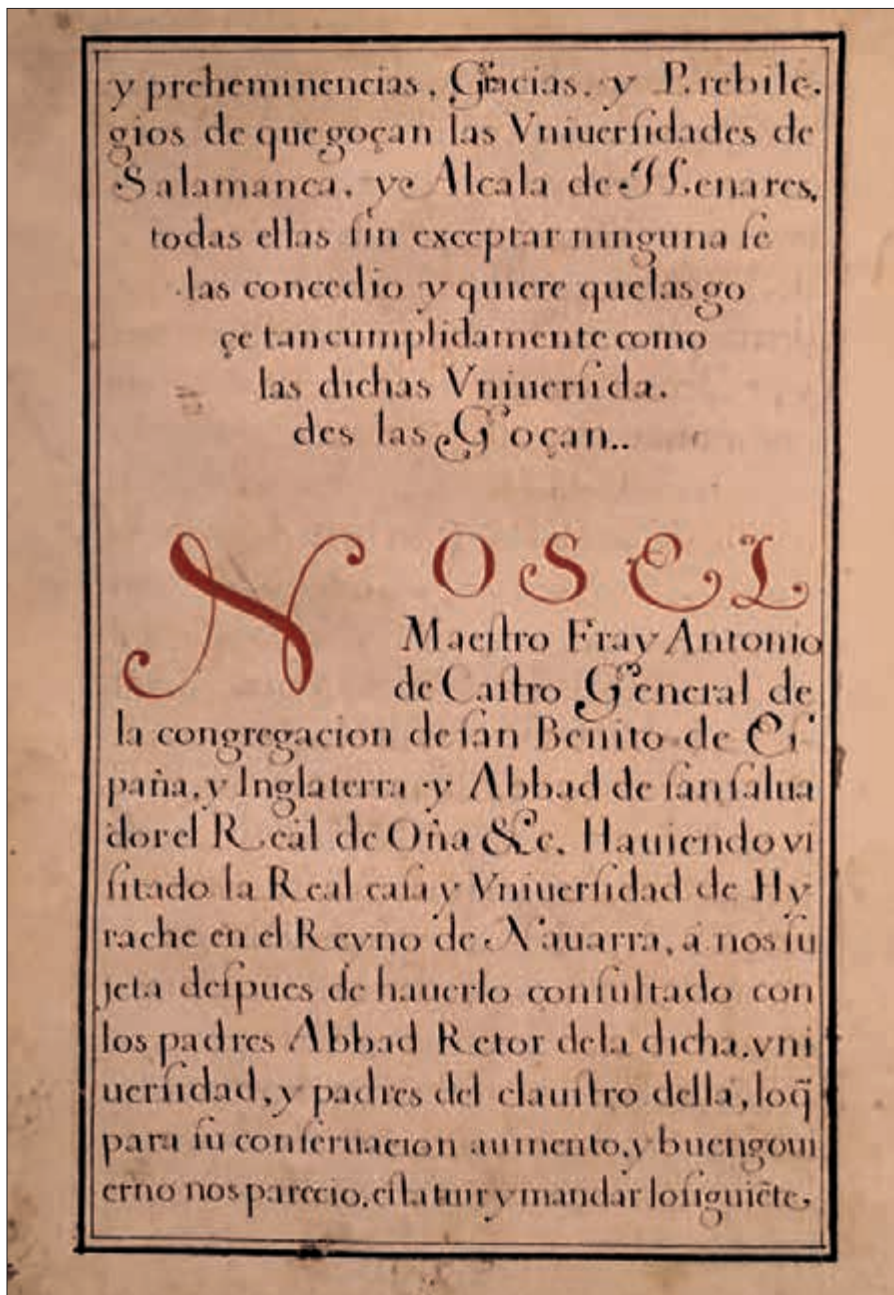 y preheminencias, Gracias, y Prebile.
gios de que goçan las Vniuerſidades de
Salamanca, y Alcala de Henares,
todas ellas ſin exceptar ninguna ſe
las concedio y quiere quelas go
çe tan cumplidamente como
las dichas Vniuerſida.
des las Goçan..
NOS EL
Maeſtro Fray Antonio
de Caſtro General de
la congregacion de ſan Benito de Eſ
paña, y Inglaterra y Abbad de ſan ſalua
dor el Real de Oña &c. Hauiendo vi
ſitado la Real caſa y Vniuerſidad de Hy
rache en el Reyno de Nauarra, á nos ſu
jeta deſpues de hauerlo conſultado con
los padres Abbad Retor dela dicha, vni
uerſidad, y padres del clauſtro della, loq̃
para ſu conſeruacion aumento, y buen goui
erno nos parecio, eſtatuir y mandar lo ſiguiẽte,